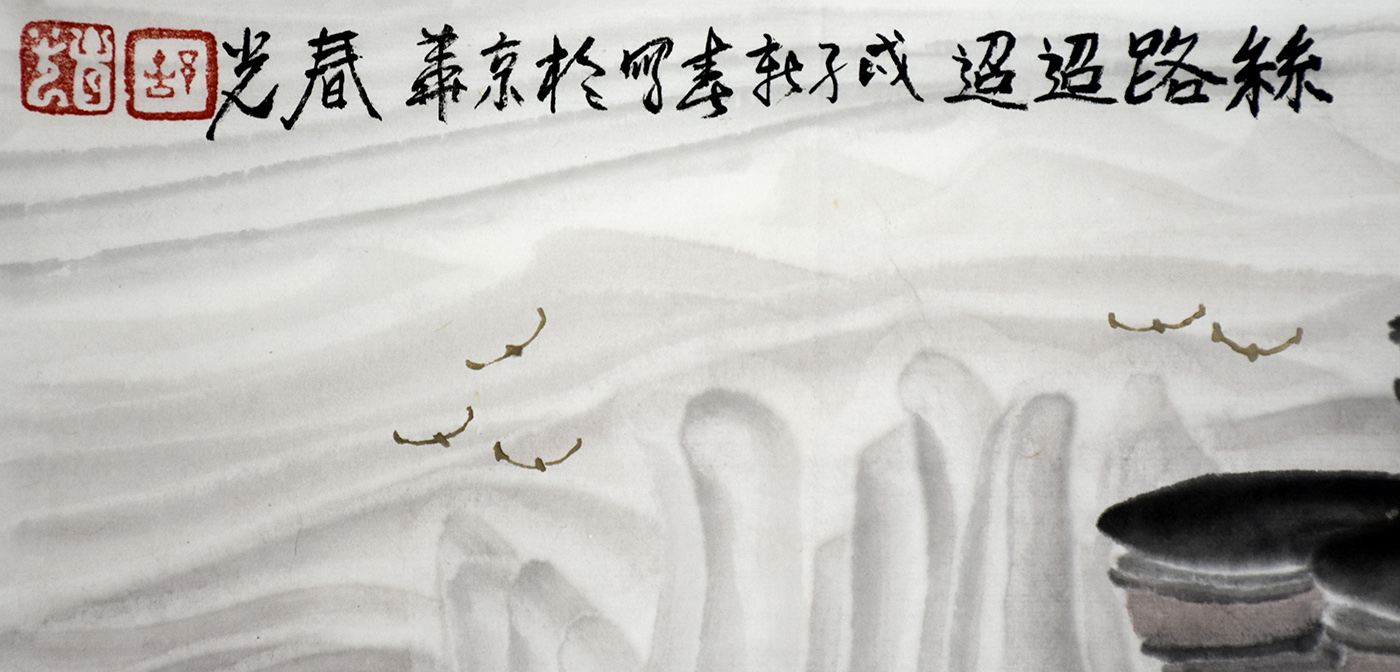 絲路迢迢 戊子新春寫於京華 春光